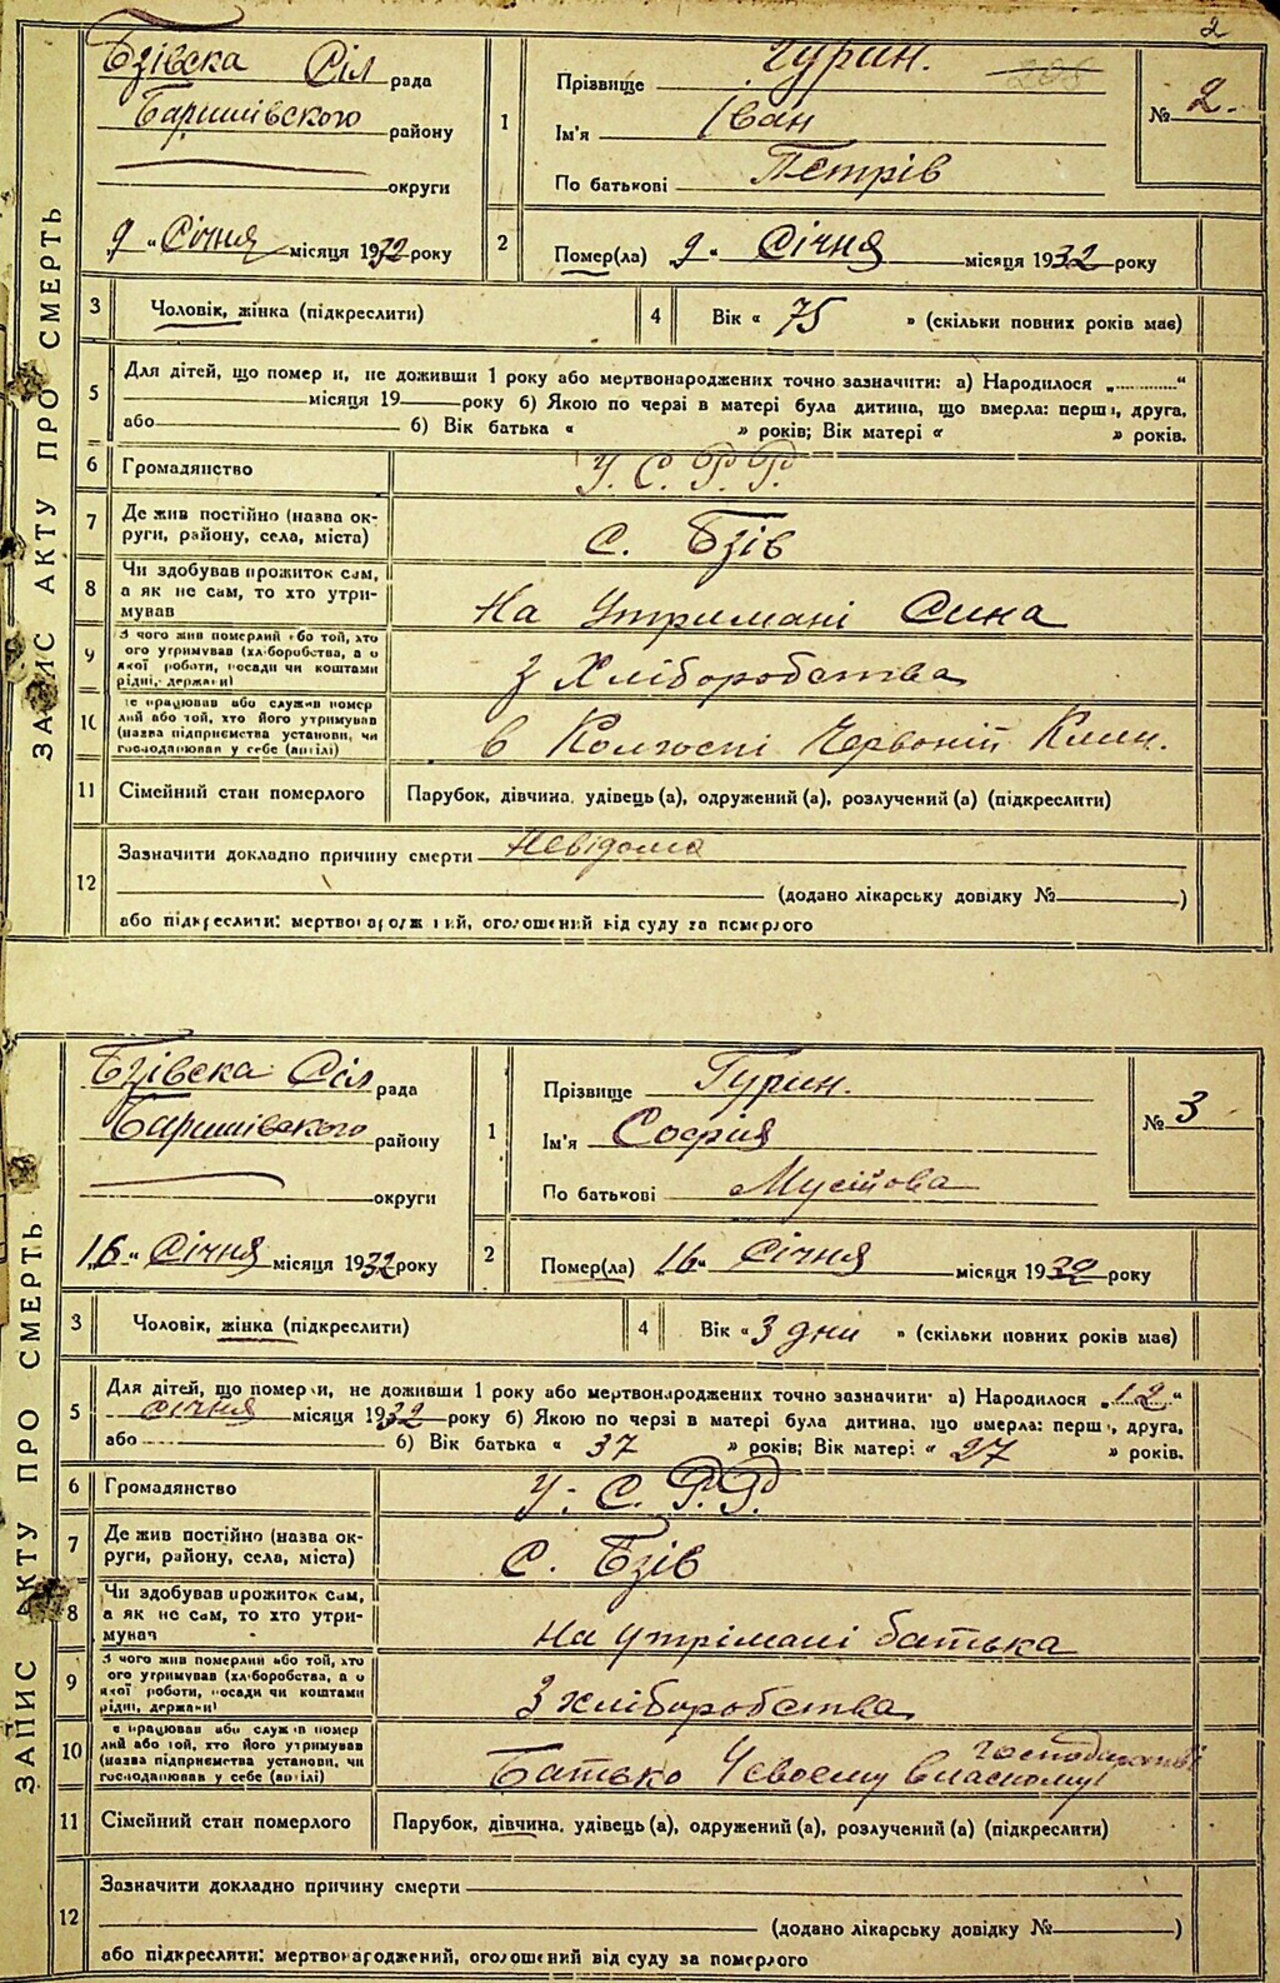 2
Бзівска Сіл рада
Баришівського району
округи
9 " Січня місяця 1932 року
ЗАПИС АКТУ ПРО СМЕРТЬ
1
Прізвище Гурин.
Ім'я Іван
По батькові Петрів
№ 2.
2
Помер(ла) 9 " Січня місяця 1932 року
3 Чоловік, жінка (підкреслити)
4 Вік « 75 » (скільки повних років має)
5 Для дітей, що померли, не доживши 1 року або мертвонароджених точно зазначити: а) Народилося „ “
місяця 19 року б) Якою по черзі в матері була дитина, що вмерла: перша, друга,
або б) Вік батька « » років; Вік матері « » років.
6 Громадянство У. С. Р. Р.
7 Де жив постійно (назва ок-
руги, району, села, міста) с. Бзів
8 Чи здобував прожиток сам,
а як не сам, то хто утри-
мував На утримані Сина
9 З чого жив померлий або той, хто
його утримував (хліборобства, а о
якої роботи, посади чи коштами
рідні, держави) з Хліборобства
10 Де працював або служив помер
лий або той, хто його утримував
(назва підприємства установи, чи
господарював у себе (вдома) в Колгоспі Червоній Клин.
11 Сімейний стан померлого Парубок, дівчина, удівець (а), одружений (а), розлучений (а) (підкреслити)
12 Зазначити докладно причину смерти Невідома
(додано лікарську довідку № )
або підкреслити: мертвонароджений, оголошений від суду за померлого
Бзівска Сіл рада
Баришівського району
округи
16 " Січня місяця 1932 року
ЗАПИС АКТУ ПРО СМЕРТЬ
1
Прізвище Гурин.
Ім'я Софія
По батькові
№ 3
2
Помер(ла) 16 " Січня місяця 1932 року
3 Чоловік, жінка (підкреслити)
4 Вік « 3 дни » (скільки повних років має)
5 Для дітей, що померли, не доживши 1 року або мертвонароджених точно зазначити: а) Народилося „ 12 “
січня місяця 1932 року б) Якою по черзі в матері була дитина, що вмерла: перша, друга,
або б) Вік батька « 37 » років; Вік матері « 27 » років.
6 Громадянство У. С. Р. Р.
7 Де жив постійно (назва ок-
руги, району, села, міста) с. Бзів
8 Чи здобував прожиток сам,
а як не сам, то хто утри-
мував на утрімані батька
9 З чого жив померлий або той, хто
його утримував (хліборобства, а о
якої роботи, посади чи коштами
рідні, держави) З хліборобства
10 Де працював або служив помер
лий або той, хто його утримував
(назва підприємства установи, чи
господарював у себе (вдома) Батько Усвоему власному господарстві
11 Сімейний стан померлого Парубок, дівчина, удівець (а), одружений (а), розлучений (а) (підкреслити)
12 Зазначити докладно причину смерти
(додано лікарську довідку № )
або підкреслити: мертвонароджений, оголошений від суду за померлого